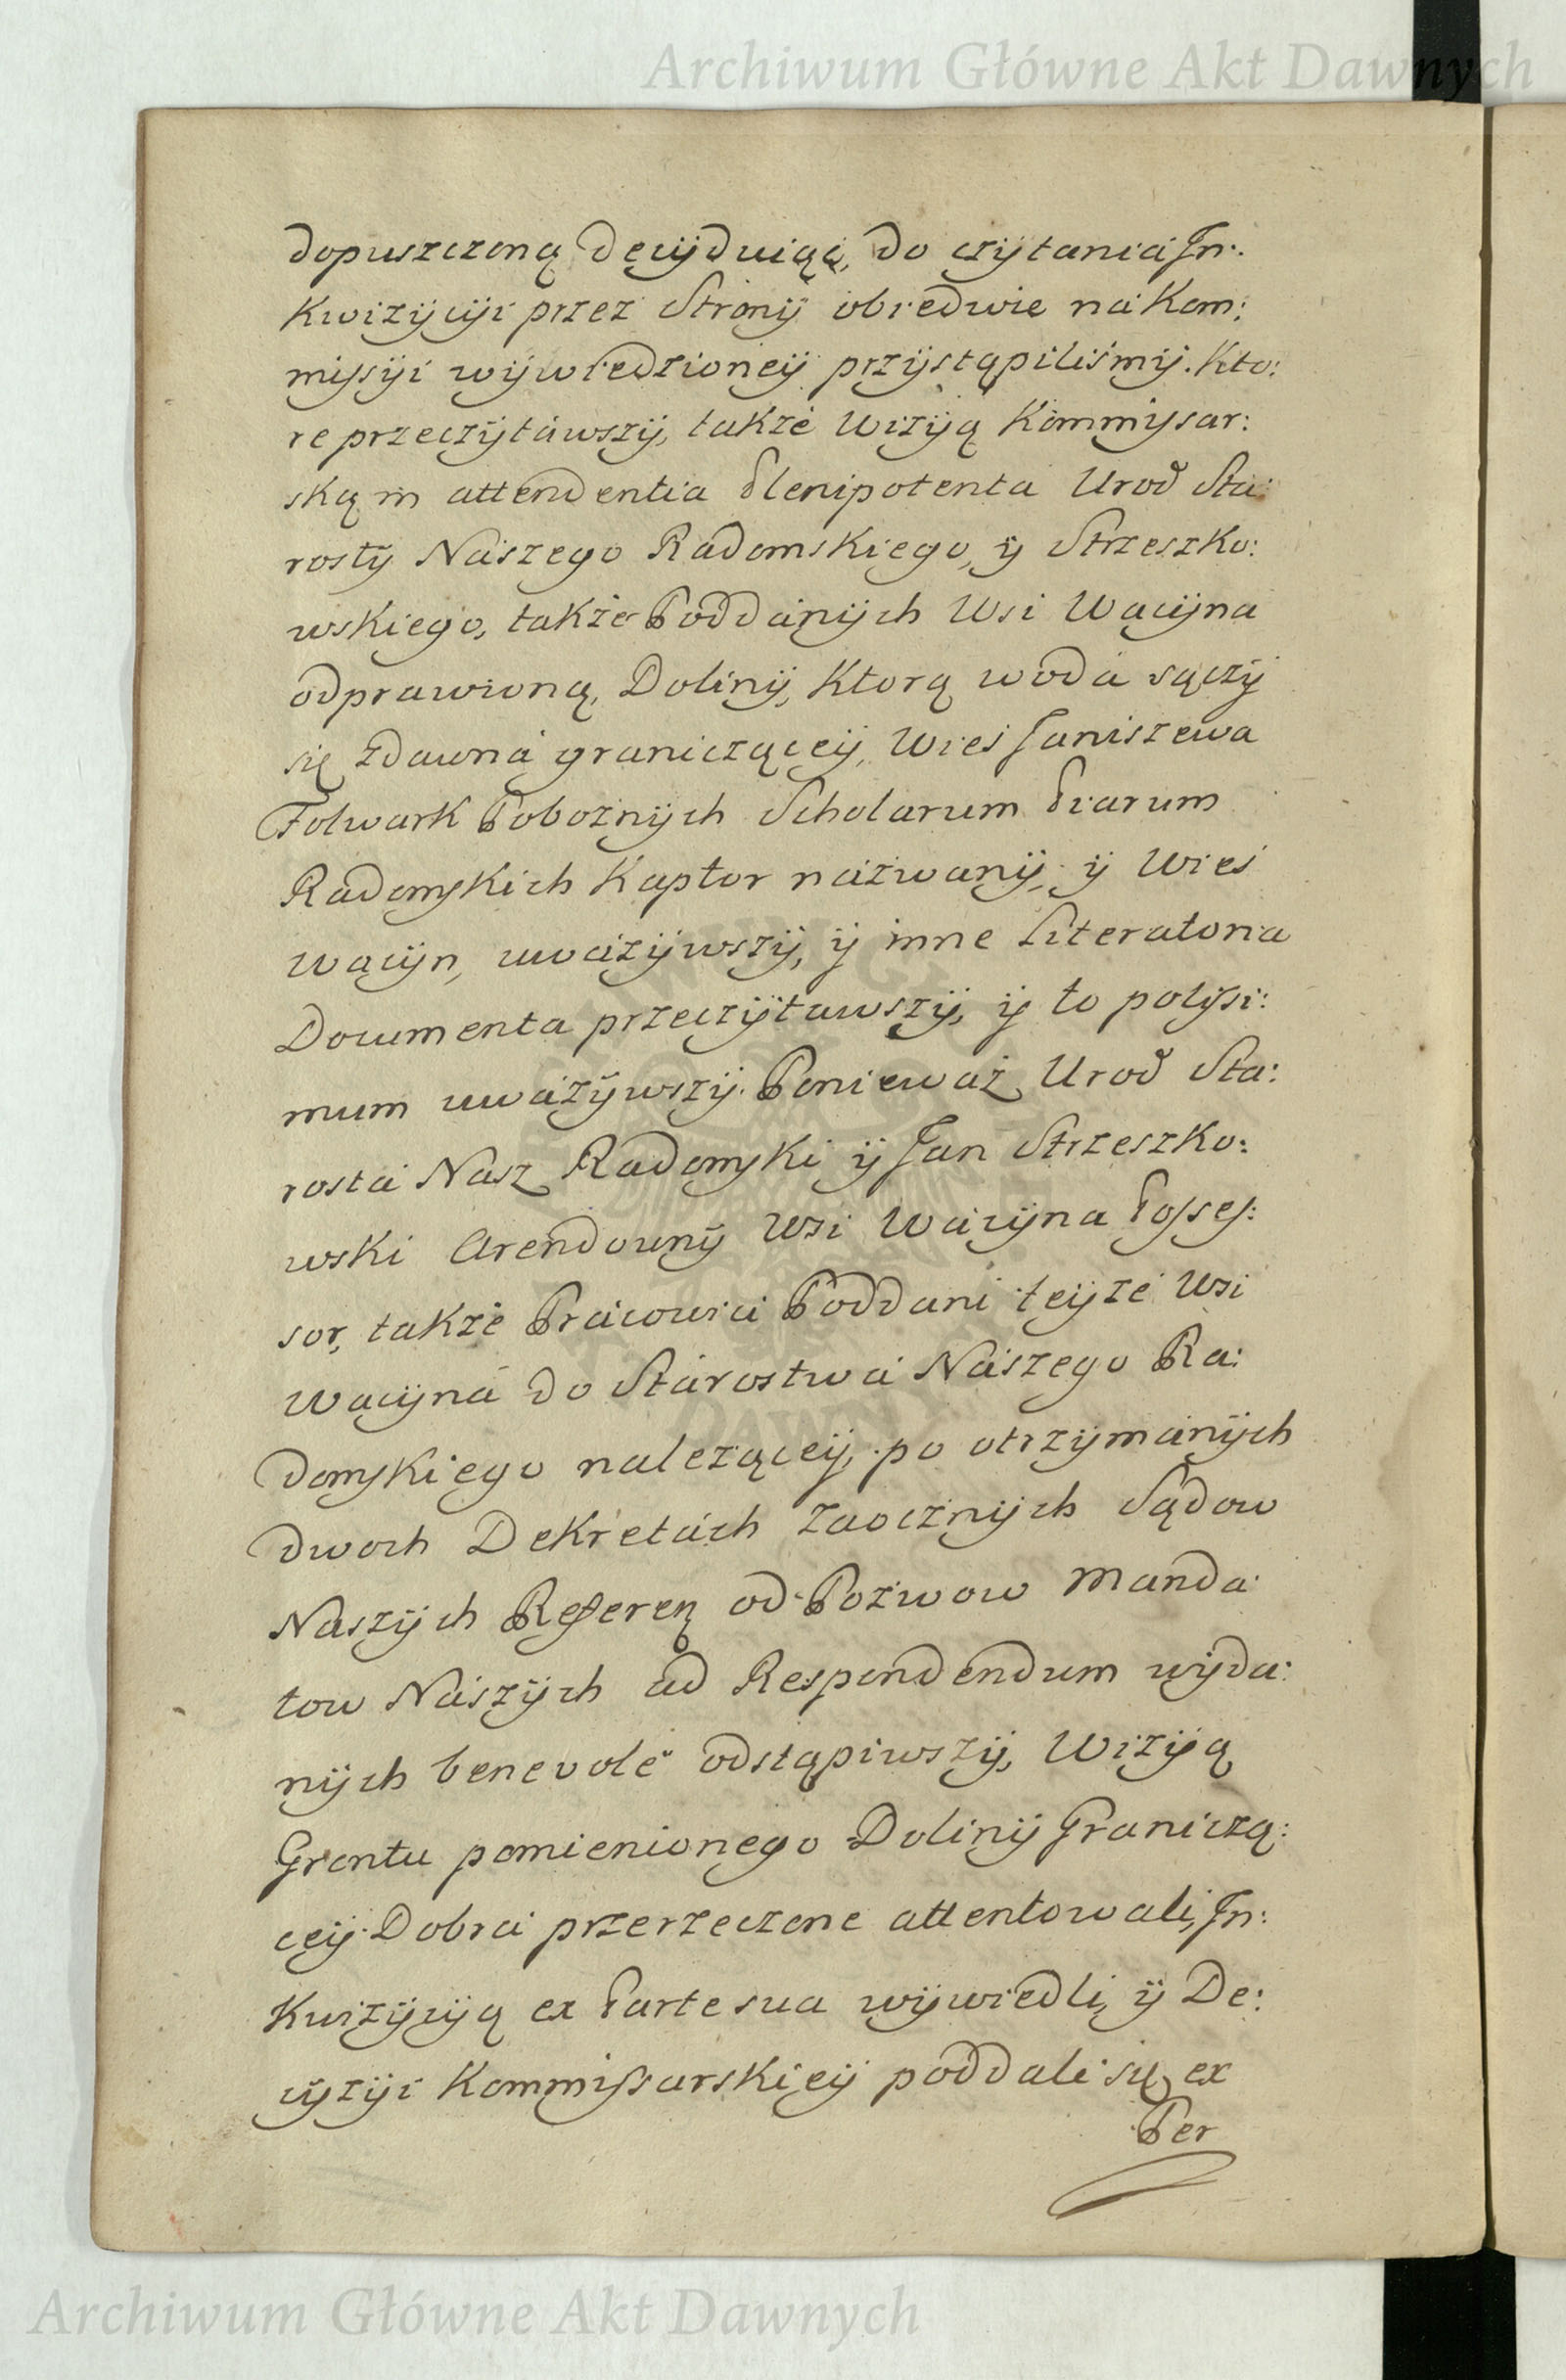 Archiwum Główne Akt Dawnych
dopuszczoną decÿduiąc, do czÿtania Jn:
kwizÿcÿi przez Stronÿ obiedwie na Kom:
missÿi wÿwiedzioneÿ przÿstąpiliśmÿ. Kto:
re przeczÿtáwszÿ, także Wizÿą Kommissar:
ską in attendentia Plenipotenta Urod Sta:
rostÿ Nászego Radomskiego, ÿ Strzeszko:
wskiego, także Poddánÿch Wsi Wacÿna
odprawioną, Dolinÿ, Ktorą woda sączÿ
się zdawná granicząceÿ, Wieś Janiszewa
Folwark Pobożnÿch Scholarum Piarum
Radomskich Kaptor názwanÿ, ÿ Wieś
Wacÿn, uważÿwszÿ, ÿ inne Literatoria
Documenta przeczÿtawszÿ, ÿ to potÿsi:
mum uważÿwszÿ. Ponieważ Urod Sta:
rosta Nász Radomski ÿ Jan Strzeszko:
wski Arendownÿ Wsi Wacÿna Posses:
sor, także Prácowici Poddani teÿże Wsi
Wacÿná do Stárostwá Nászego Ra:
domskiego należąceÿ, po otrzÿmánÿch
dwoch Dekretách zaocznÿch Sądow
Naszÿch Referen od Pozwow Manda:
tow Nászÿch ad Respondendum wÿda:
nÿch benevole odstąpiwszÿ, Wizÿą
Grontu pomienionego Dolinÿ Granicżą:
ceÿ Dobra przerzeczone attentowali, Jn:
kwizÿcÿą ex Parte sua wÿwiedli, ÿ De:
cÿzÿi Kommissarskieÿ poddali się, ex
Per
Archiwum Główne Akt Dawnych